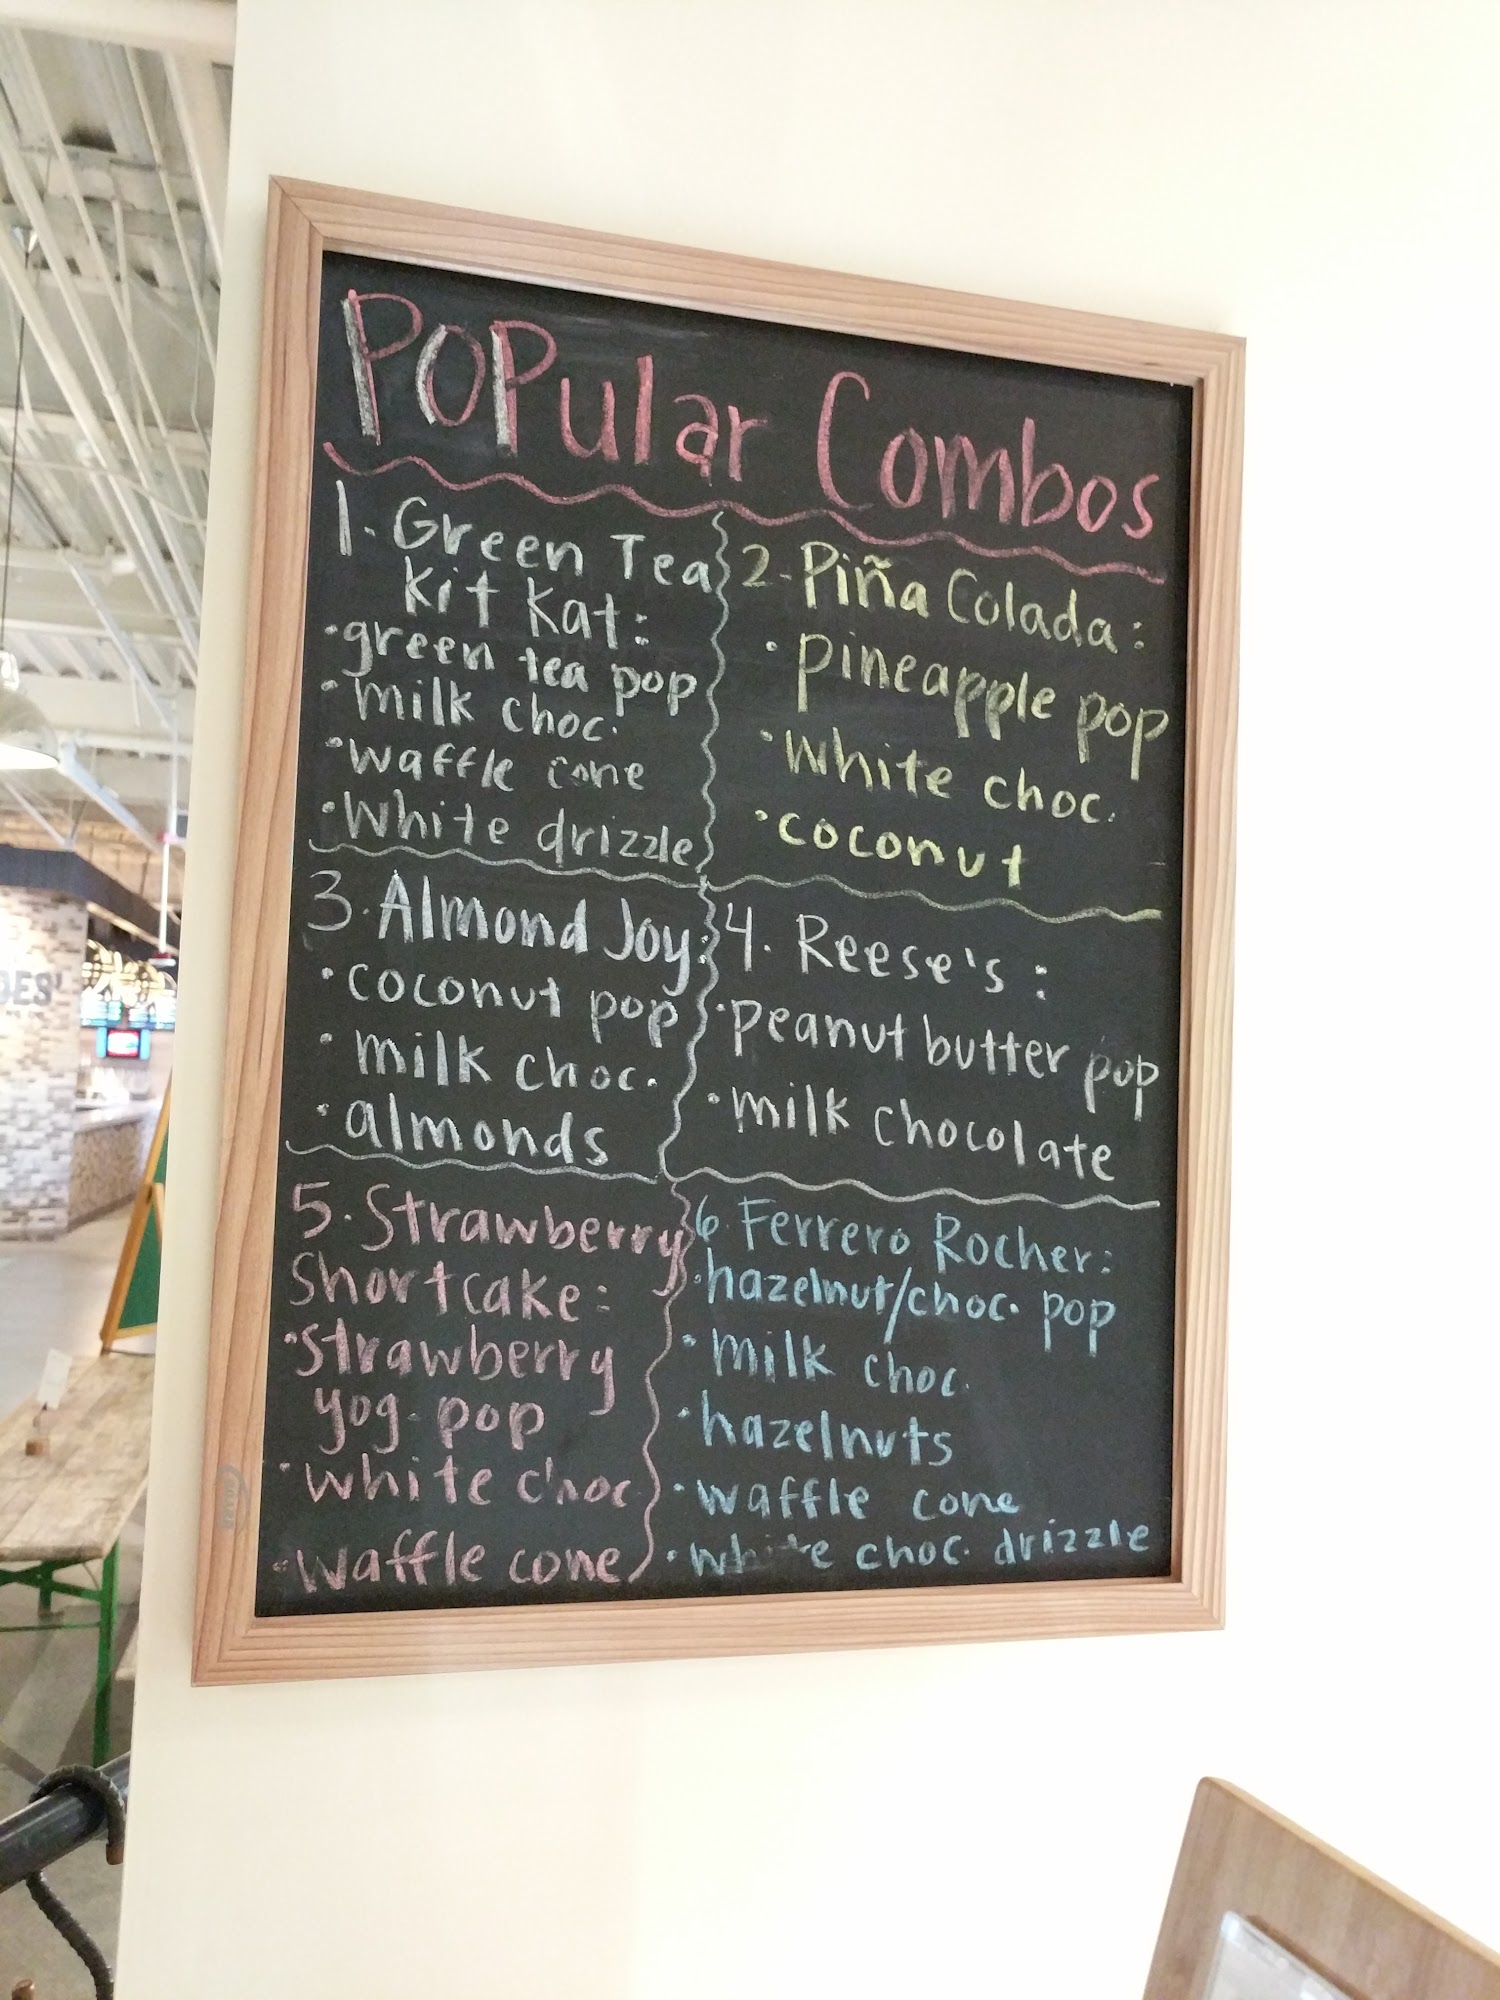 POPular Combos
1. Green Tea
Kit Kat:
• green tea pop
• milk choc.
• waffle cone
• white drizzle
2. Piña Colada:
• pineapple pop
• white choc.
• coconut
3. Almond Joy:
• coconut pop
• milk choc.
• almonds
4. Reese's:
• peanut butter pop
• milk chocolate
5. Strawberry
Shortcake:
• strawberry
yog. pop
• white choc
• waffle cone
6. Ferrero Rocher:
• hazelnut/choc. pop
• milk choc.
• hazelnuts
• waffle cone
• white choc. drizzle